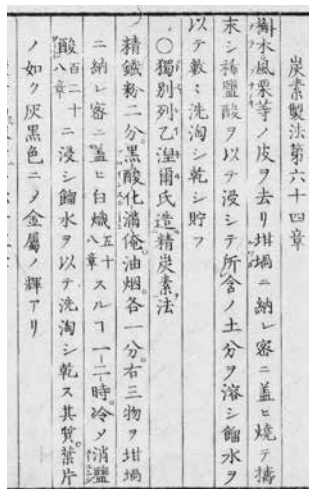 炭素製法第六十四章
槲木風栗等ノ皮ヲ去リ坩堝ニ納レ密ニ蓋ヒ燒テ擣
末シ稀鹽酸ヲ以テ浸シテ所含ノ土分ヲ溶シ餾水ヲ
以テ數〻洗淘シ乾シ貯フ
〇獨別列乙涅爾氏造精炭素法
精鐵粉二分。黑酸化滿俺。油烟。各一分。右三物ヲ坩堝
ニ納レ密ニ蓋ヒ白熾五十八章スルコ一二時。冷メ消鹽
酸百二十八章ニ浸シ餾水ヲ以テ洗淘シ乾ス其質。葉片
ノ如ク灰黑色ニメ金屬ノ輝アリ